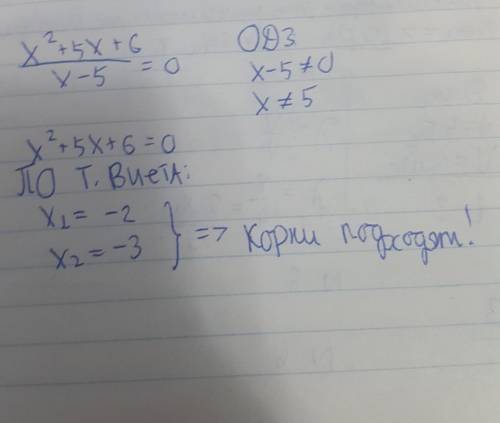 x²+5x+6 / x-5 = 0
ОДЗ
x-5≠0
x≠5
x²+5x+6=0
ПО Т. Виета:
x1 = -2
x2 = -3
} => корни подходят!